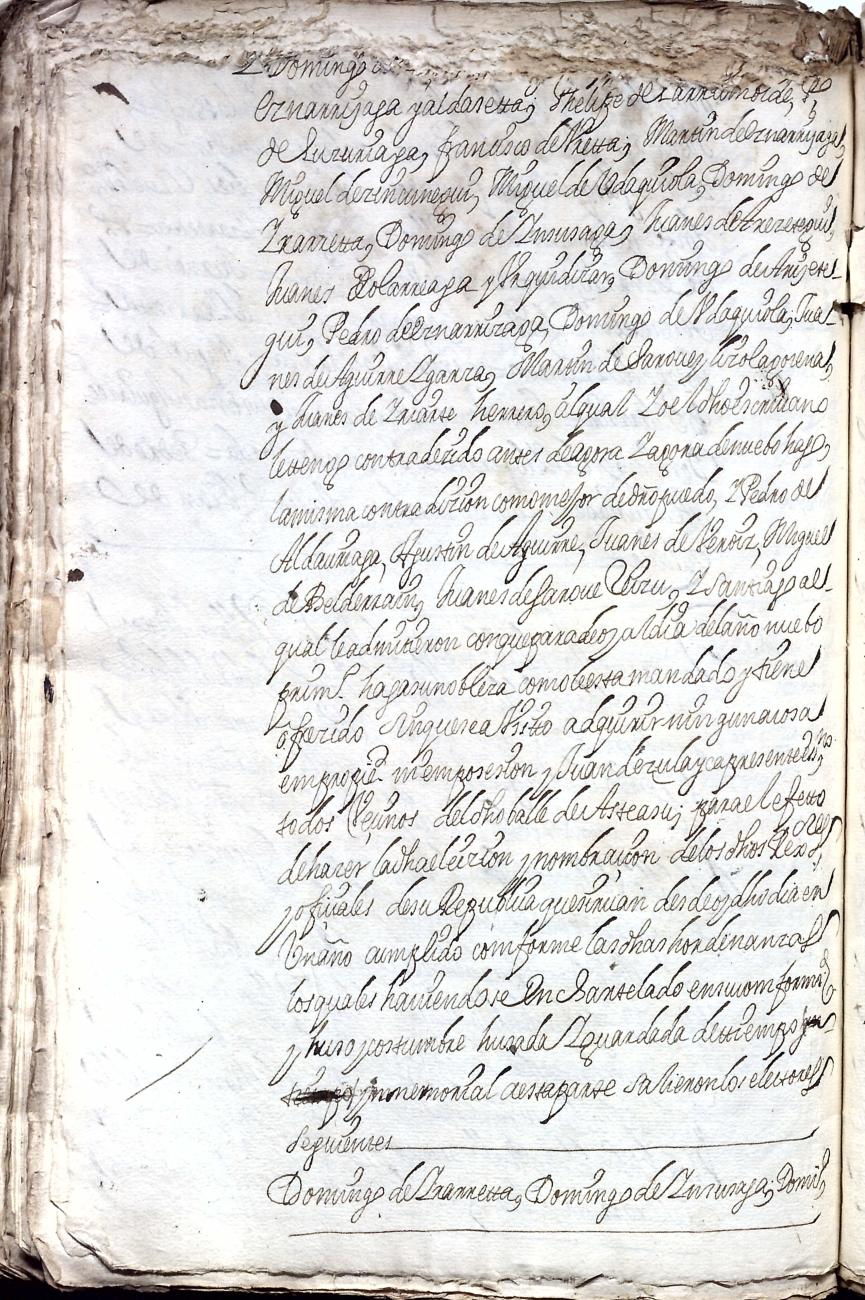 Domingo
Oznarrijaga y aldasetta, Phelipe de Larrumvide, Po
de Luzuriaga, francisco de Vretta, Martin de Oznarrijaga,
Miguel de, Miguel de Vdaquiola, Domingo de
Yrarretta, Domingo de Ynsusaga, Juanes de
Juanes Dolarreaga y Yrquidizar, Domingo de Arijztegui
gui, Pedro de Oznarrizaga, Domingo de Vdaquiola, Jua
nes de Aguirre Lganza, Martin de Jarouez
y Juanes de Yriarte herrero, alqual Yo el dho escriuano
lettengo contradezido antes de agora Yagora denuebo hago
lamisma contradizion comomejor de dro puedo, Y Pedro de
Aldauriaga, Agustin de Aguirre, Juanes de Veroiz, Miguel
de Belderrain, Juanes de Jaroue, Y Santiago al
qual leadmitieron conquepara de oy aldia del año nuebo
primo. hagasunobleza comolestamandado y tiene
ofrezido sinquesea Visto adquirir ninguna cosa
empropied. niemposesion, y Juan de zulayca presente
todos Vezinos del dho balle de Asteasu, para el efetto
dehazer ladhaelezion y nombrazion delosdhos
y ofiziales desu Republica quesiruan desdeoydhodia en
Vn año cumplido comforme lasdhas hordenanzas
losquales hauiendose
y huso y costumbre husada Y guardada detiempo
ynmemorial aestaparte salieronlos electores
seguientes
Domingo de Yrarretta, Domingo de Ynsusaga, Domin